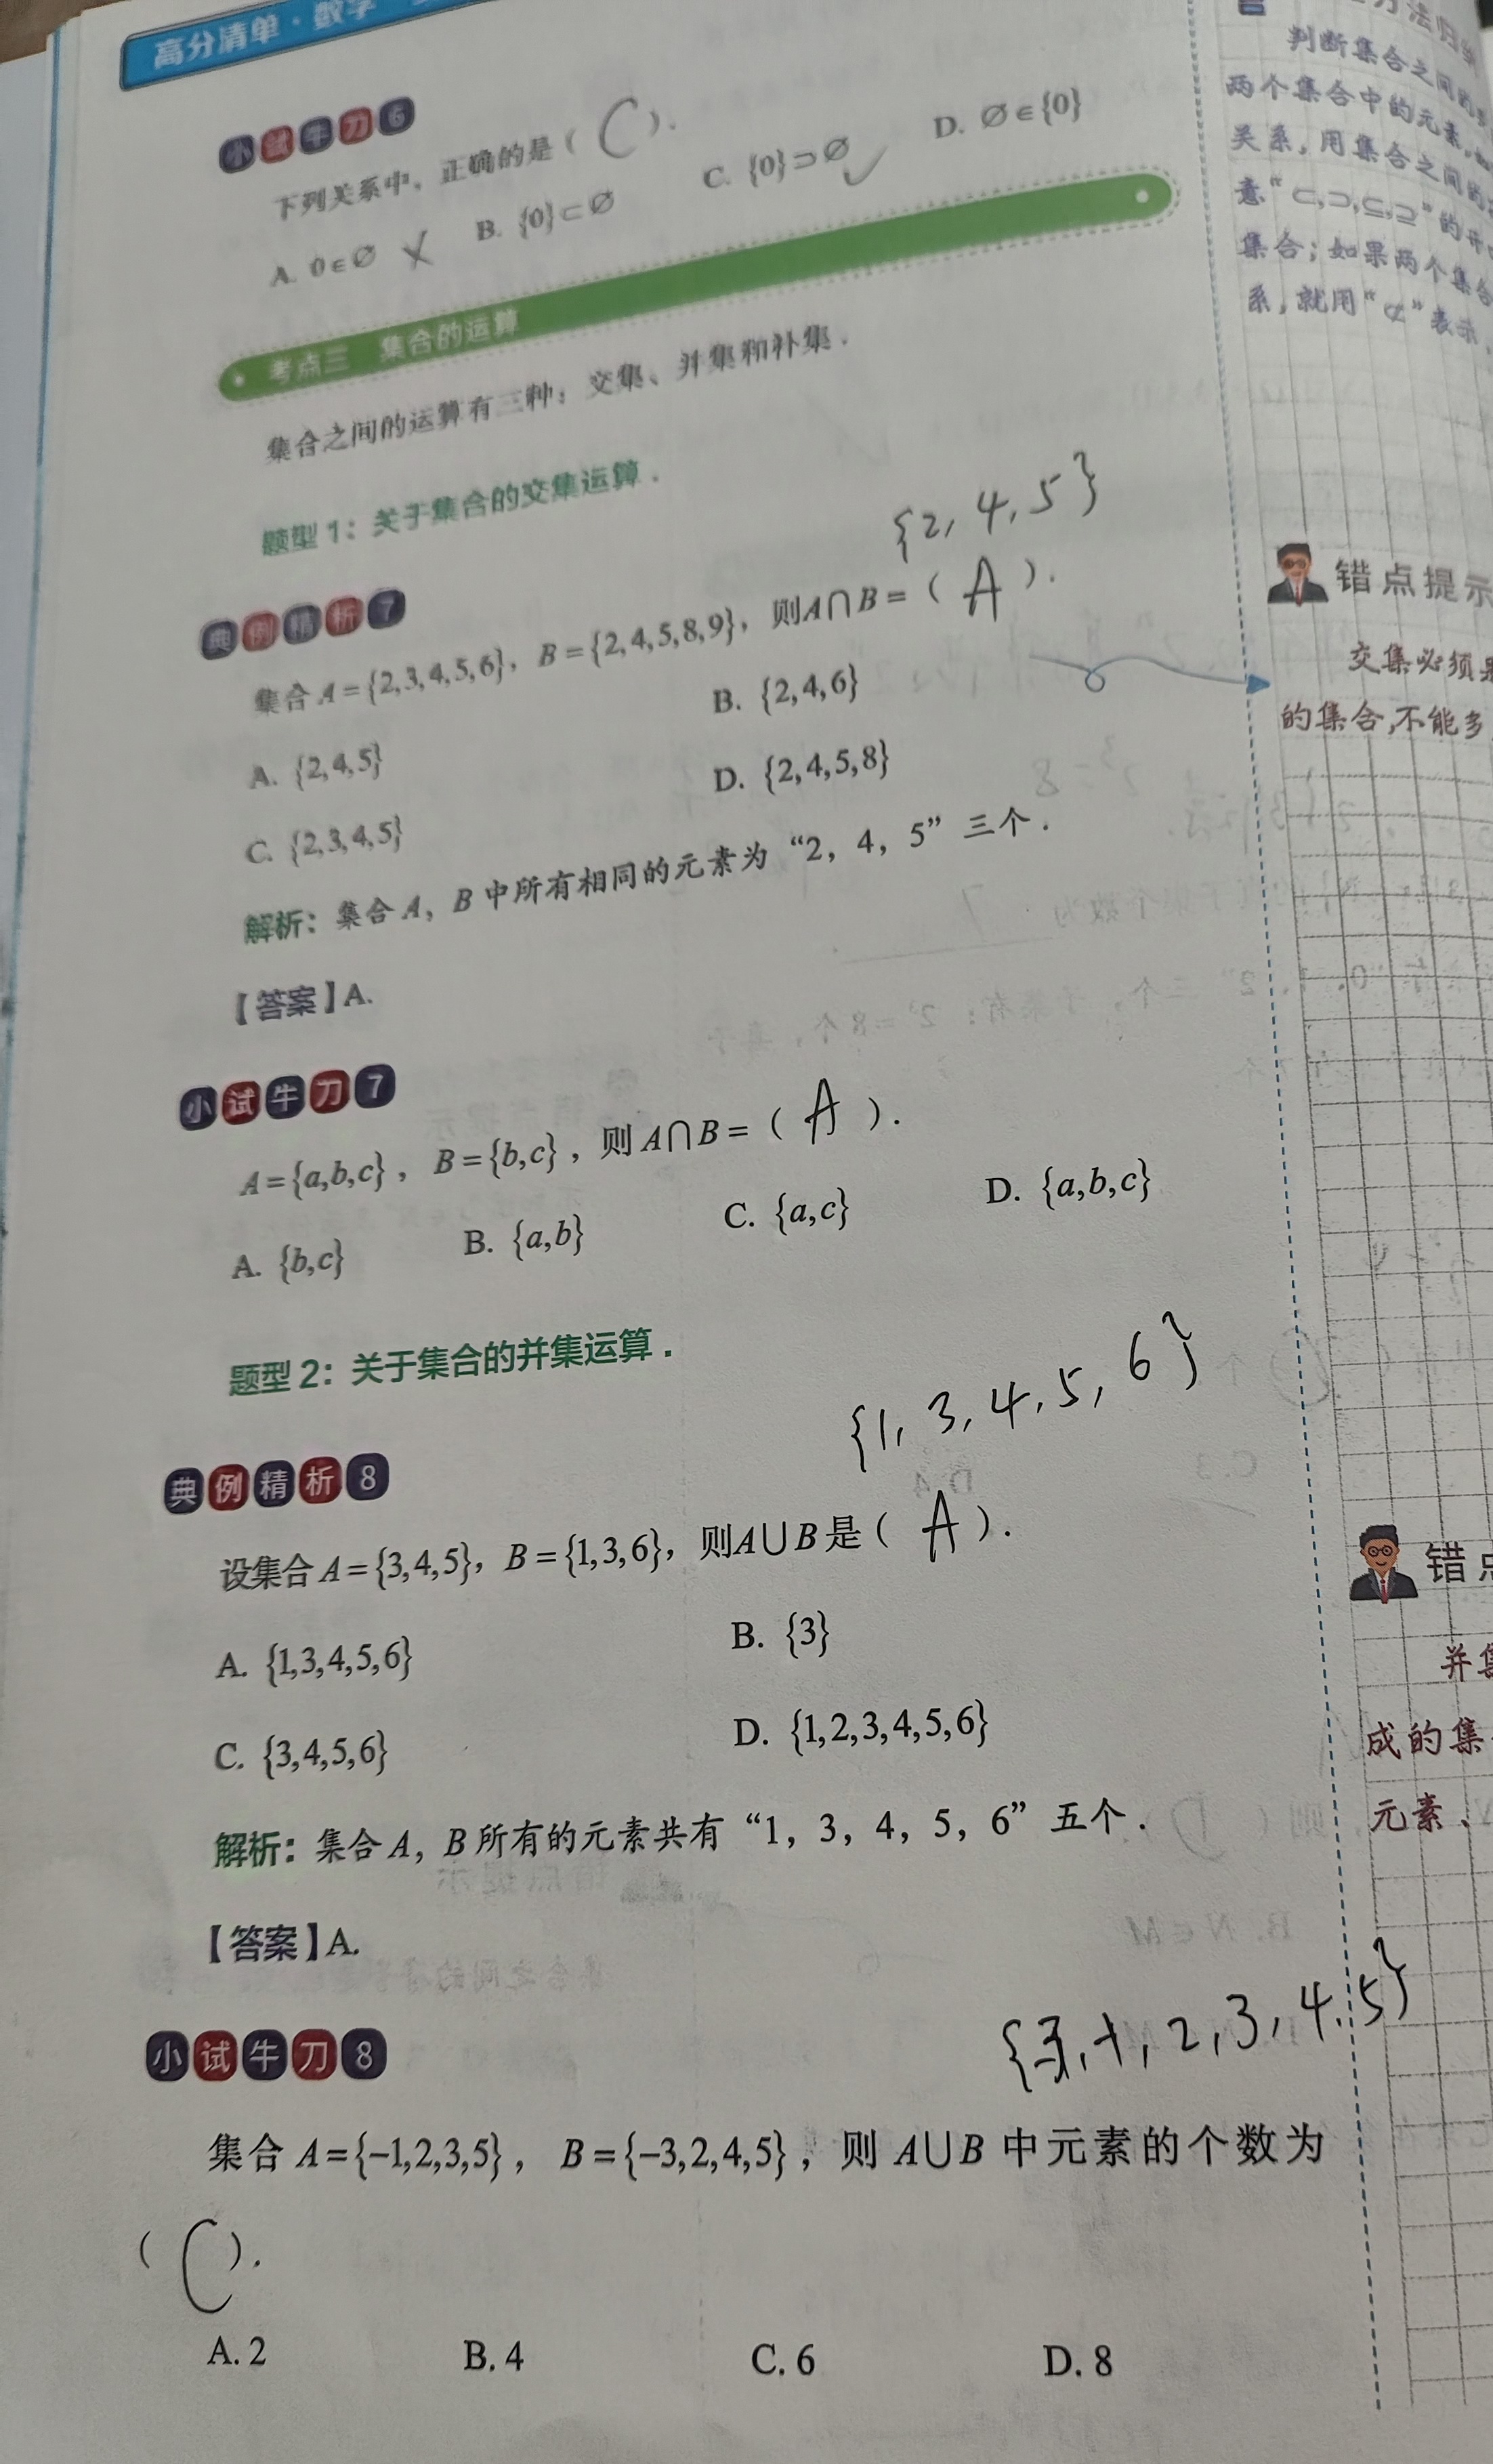 高分清单·数学
小试牛刀6
下列关系中，正确的是（ C ）.
A. 0∈∅ ✗ B. {0}⊂∅ C. {0}⊃∅ ✓ D. ∅∈{0}
考点三 集合的运算
集合之间的运算有三种：交集、并集和补集.
题型1：关于集合的交集运算.
{2, 4, 5}
典例精析7
集合A={2,3,4,5,6}，B={2,4,5,8,9}，则A∩B=（ A ）.
A. {2,4,5} B. {2,4,6}
C. {2,3,4,5} D. {2,4,5,8}
解析：集合A，B中所有相同的元素为“2，4，5”三个.
【答案】A.
小试牛刀7
A={a,b,c}，B={b,c}，则A∩B=（ A ）.
A. {b,c} B. {a,b} C. {a,c} D. {a,b,c}
题型2：关于集合的并集运算.
{1, 3, 4, 5, 6}
典例精析8
设集合A={3,4,5}，B={1,3,6}，则A∪B是（ A ）.
A. {1,3,4,5,6} B. {3}
C. {3,4,5,6} D. {1,2,3,4,5,6}
解析：集合A，B所有的元素共有“1，3，4，5，6”五个.
【答案】A.
小试牛刀8
2, 3, 4, 5}
集合A={-1,2,3,5}，B={-3,2,4,5}，则A∪B中元素的个数为
（ C ）.
A. 2 B. 4 C. 6 D. 8
方法归纳
判断集合之间的
两个集合中的元素,
关系,用集合之间的
意“⊂,⊃,⊆,⊇”的开
集合;如果两个集合
系,就用“⊄”表示.
错点提示
交集必须是
的集合,不能多
错点
并集
成的集
元素.